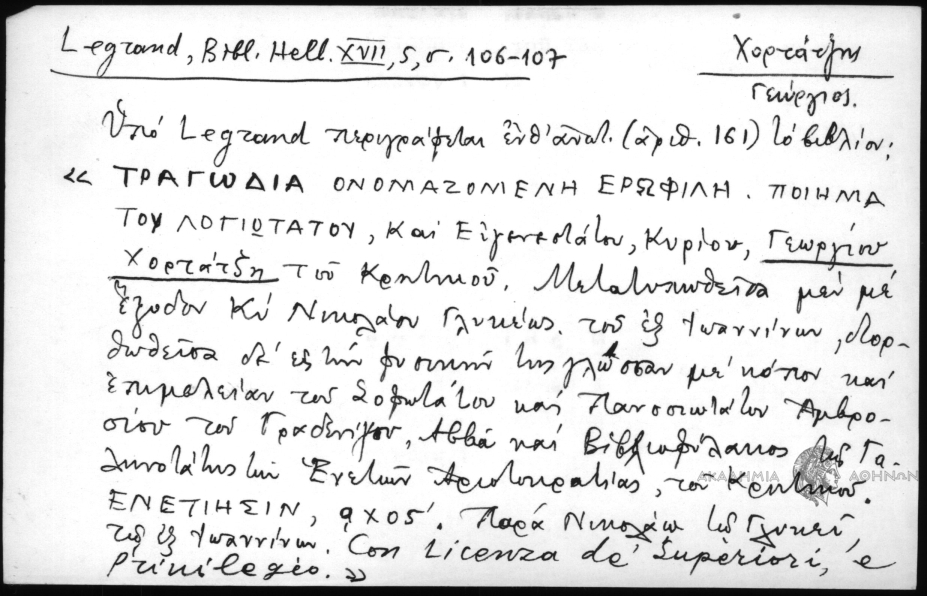 Legrand, Bibl. Hell. XVII, 5, σ. 106-107
Χορτάτζης
Γεώργιος.
Ὑπό Legrand περιγράφεται ἐνθ' ἀνωτ. (ἀριθ. 161) τό βιβλίον:
« ΤΡΑΓΩΔΙΑ ΟΝΟΜΑΖΟΜΕΝΗ ΕΡΩΦΙΛΗ. ΠΟΙΗΜΑ
ΤΟΥ ΛΟΓΙΩΤΑΤΟΥ, Καί Εὐγενεστάτου, Κυρίου, Γεωργίου
Χορτάτζη τοῦ Κρητικοῦ. Μετατυπωθεῖσα μέν μέ
ἔξοδον Κύ Νικολάου Γλυκέως. τοῦ ἐξ Ἰωαννίνων, διορ-
θωθεῖσα δ' εἰς τήν φυσικήν της γλῶσσαν μέ κόπον καί
ἐπιμέλειαν τοῦ Σοφωτάτου καί Πανοσιωτάτου Ἀμβρο-
σίου τοῦ Γραδενίγου, Ἀββᾶ καί Βιβλιοφύλακος τῆς Γα-
ληνοτάτης τῶν Ἐνετῶν Ἀριστοκρατίας, τοῦ Κρητικοῦ.
ΕΝΕΤΙΗΣΙΝ, ͵αχος΄. Παρά Νικολάῳ τῷ Γλυκεῖ,
τῷ ἐξ Ἰωαννίνων. Con Licenza de' Superiori, e
Privilegio. »
ΑΚΑΔΗΜΙΑ ΑΘΗΝΩΝ